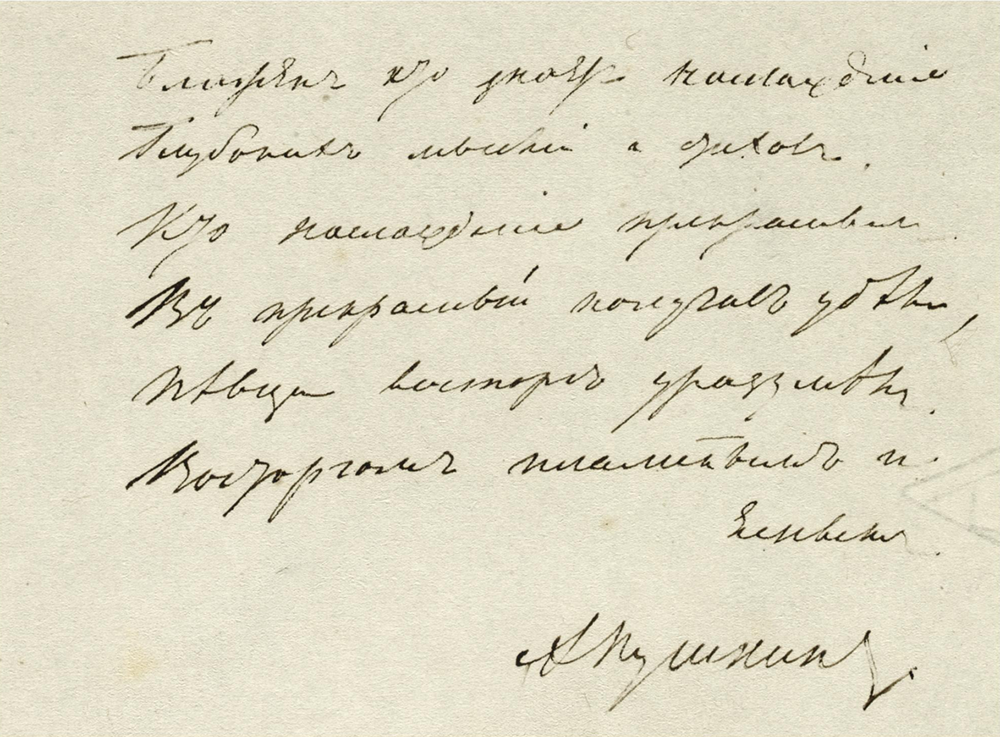 Блаженъ кто знаетъ наслажденіе
Глубокихъ мыслей и стиховъ.
Кто наслажденіе прекраснымъ
Въ прекрасный получилъ удѣлъ,
Пѣвца восторгъ уразумѣлъ.
Восторгомъ пламеннымъ и
Яснымъ.
А Пушкинъ